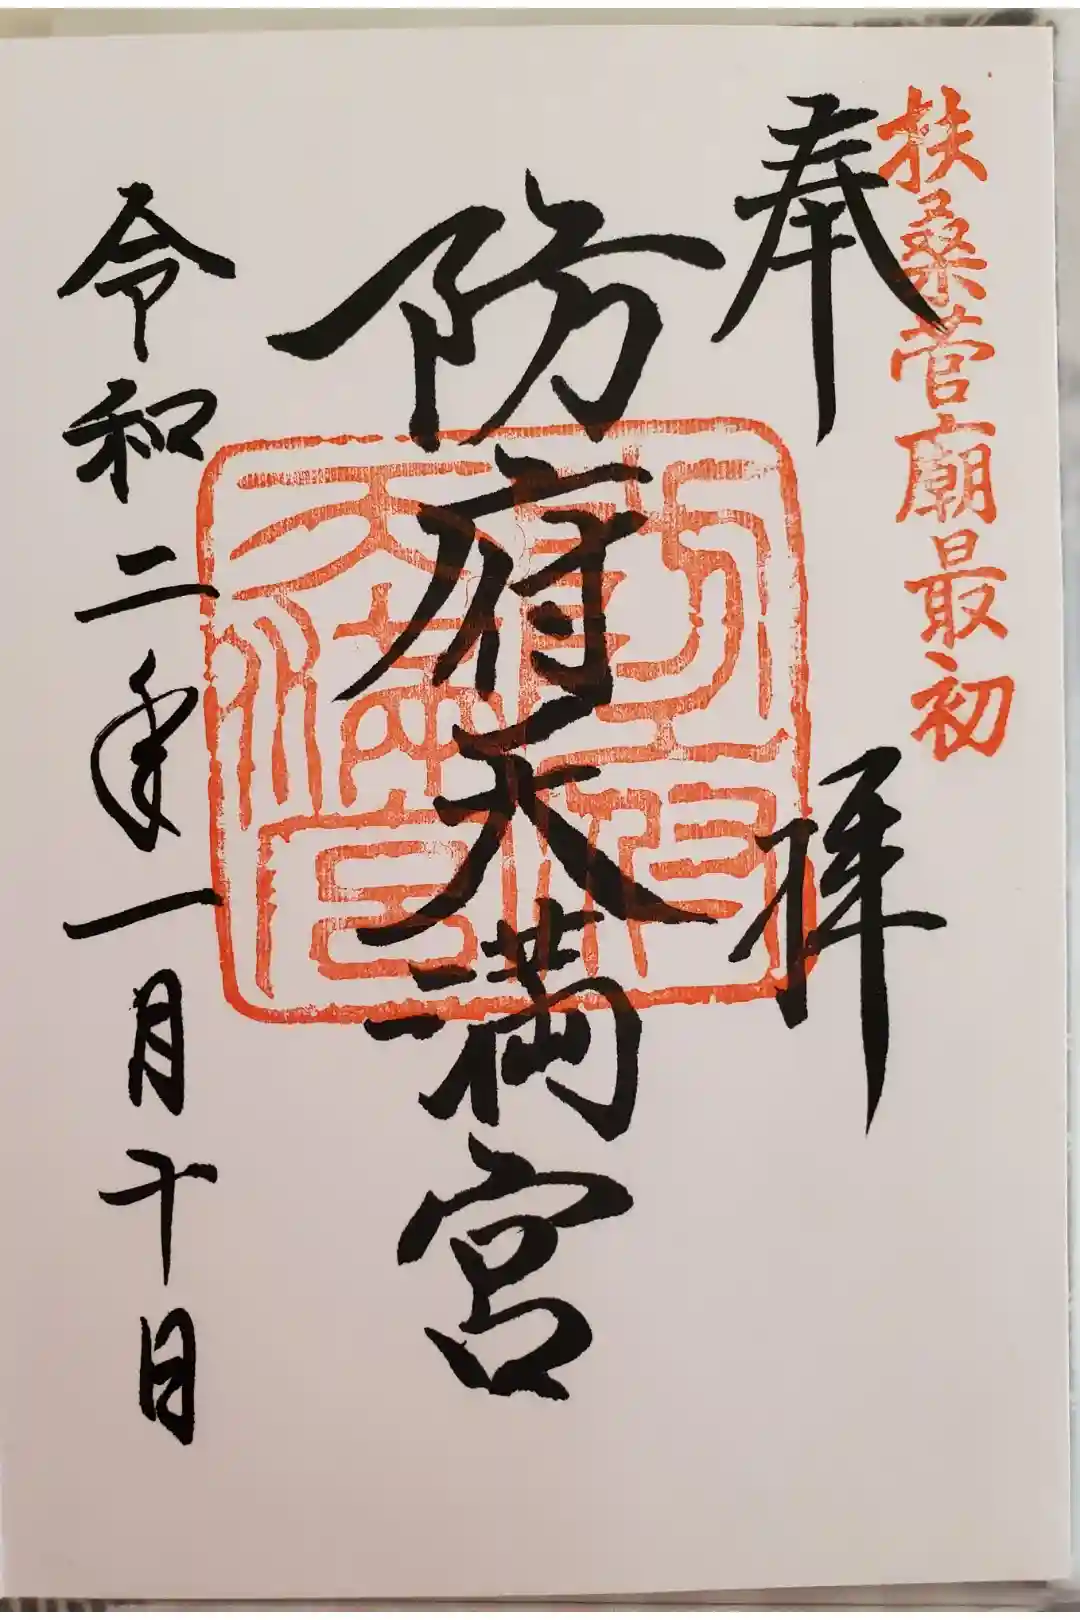 扶桑菅廟最初
奉拝
防府天満宮
令和二年一月十日